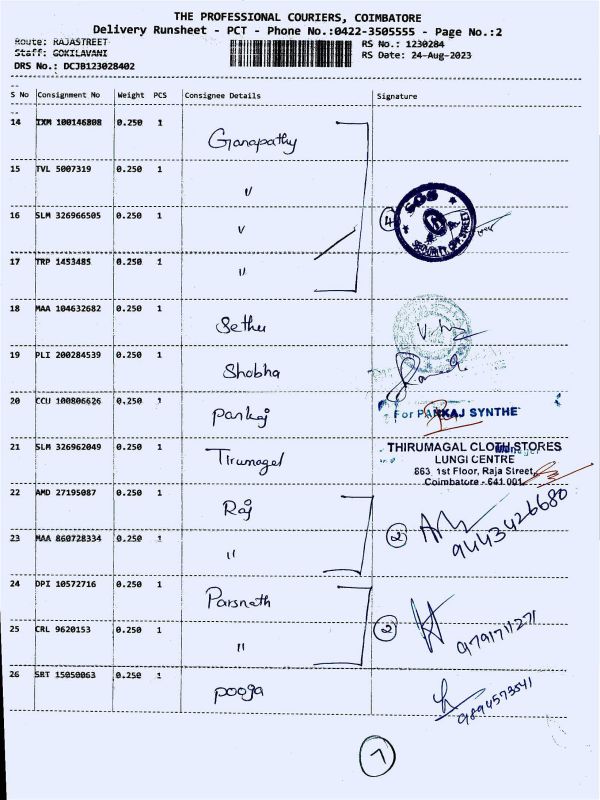 THE PROFESSIONAL COURIERS, COIMBATORE
Delivery Runsheet - PCT - Phone No.:0422-3505555 - Page No.:2
Route: RAJASTREET
Staff: GOKILAVANI
DRS No.: DCJB123028402
RS No.: 1230284
RS Date: 24-Aug-2023
S No Consignment No Weight PCS Consignee Details Signature
14 IXM 100146808 0.250 1 Ganapathy
15 TVL 5007319 0.250 1 "
16 SLM 326966505 0.250 1 " 4
SDS
SECURITY OFF STREET
17 TRP 1453485 0.250 1 "
18 MAA 104632682 0.250 1 Sethu
19 PLI 200284539 0.250 1 Shobha
20 CCU 100806626 0.250 1 Pankaj
For PANKAJ SYNTHE
21 SLM 326962049 0.250 1 Tirumagal
THIRUMAGAL CLOTH STORES
LUNGI CENTRE
863 1st Floor, Raja Street,
Coimbatore - 641 001
22 AMD 27195087 0.250 1 Raj
23 MAA 860728334 0.250 1 " 2
9443426680
24 DPI 10572716 0.250 1 Parsnath
25 CRL 9620153 0.250 1 " 2
9791711271
26 SRT 15050063 0.250 1 pooja
9894573541
7